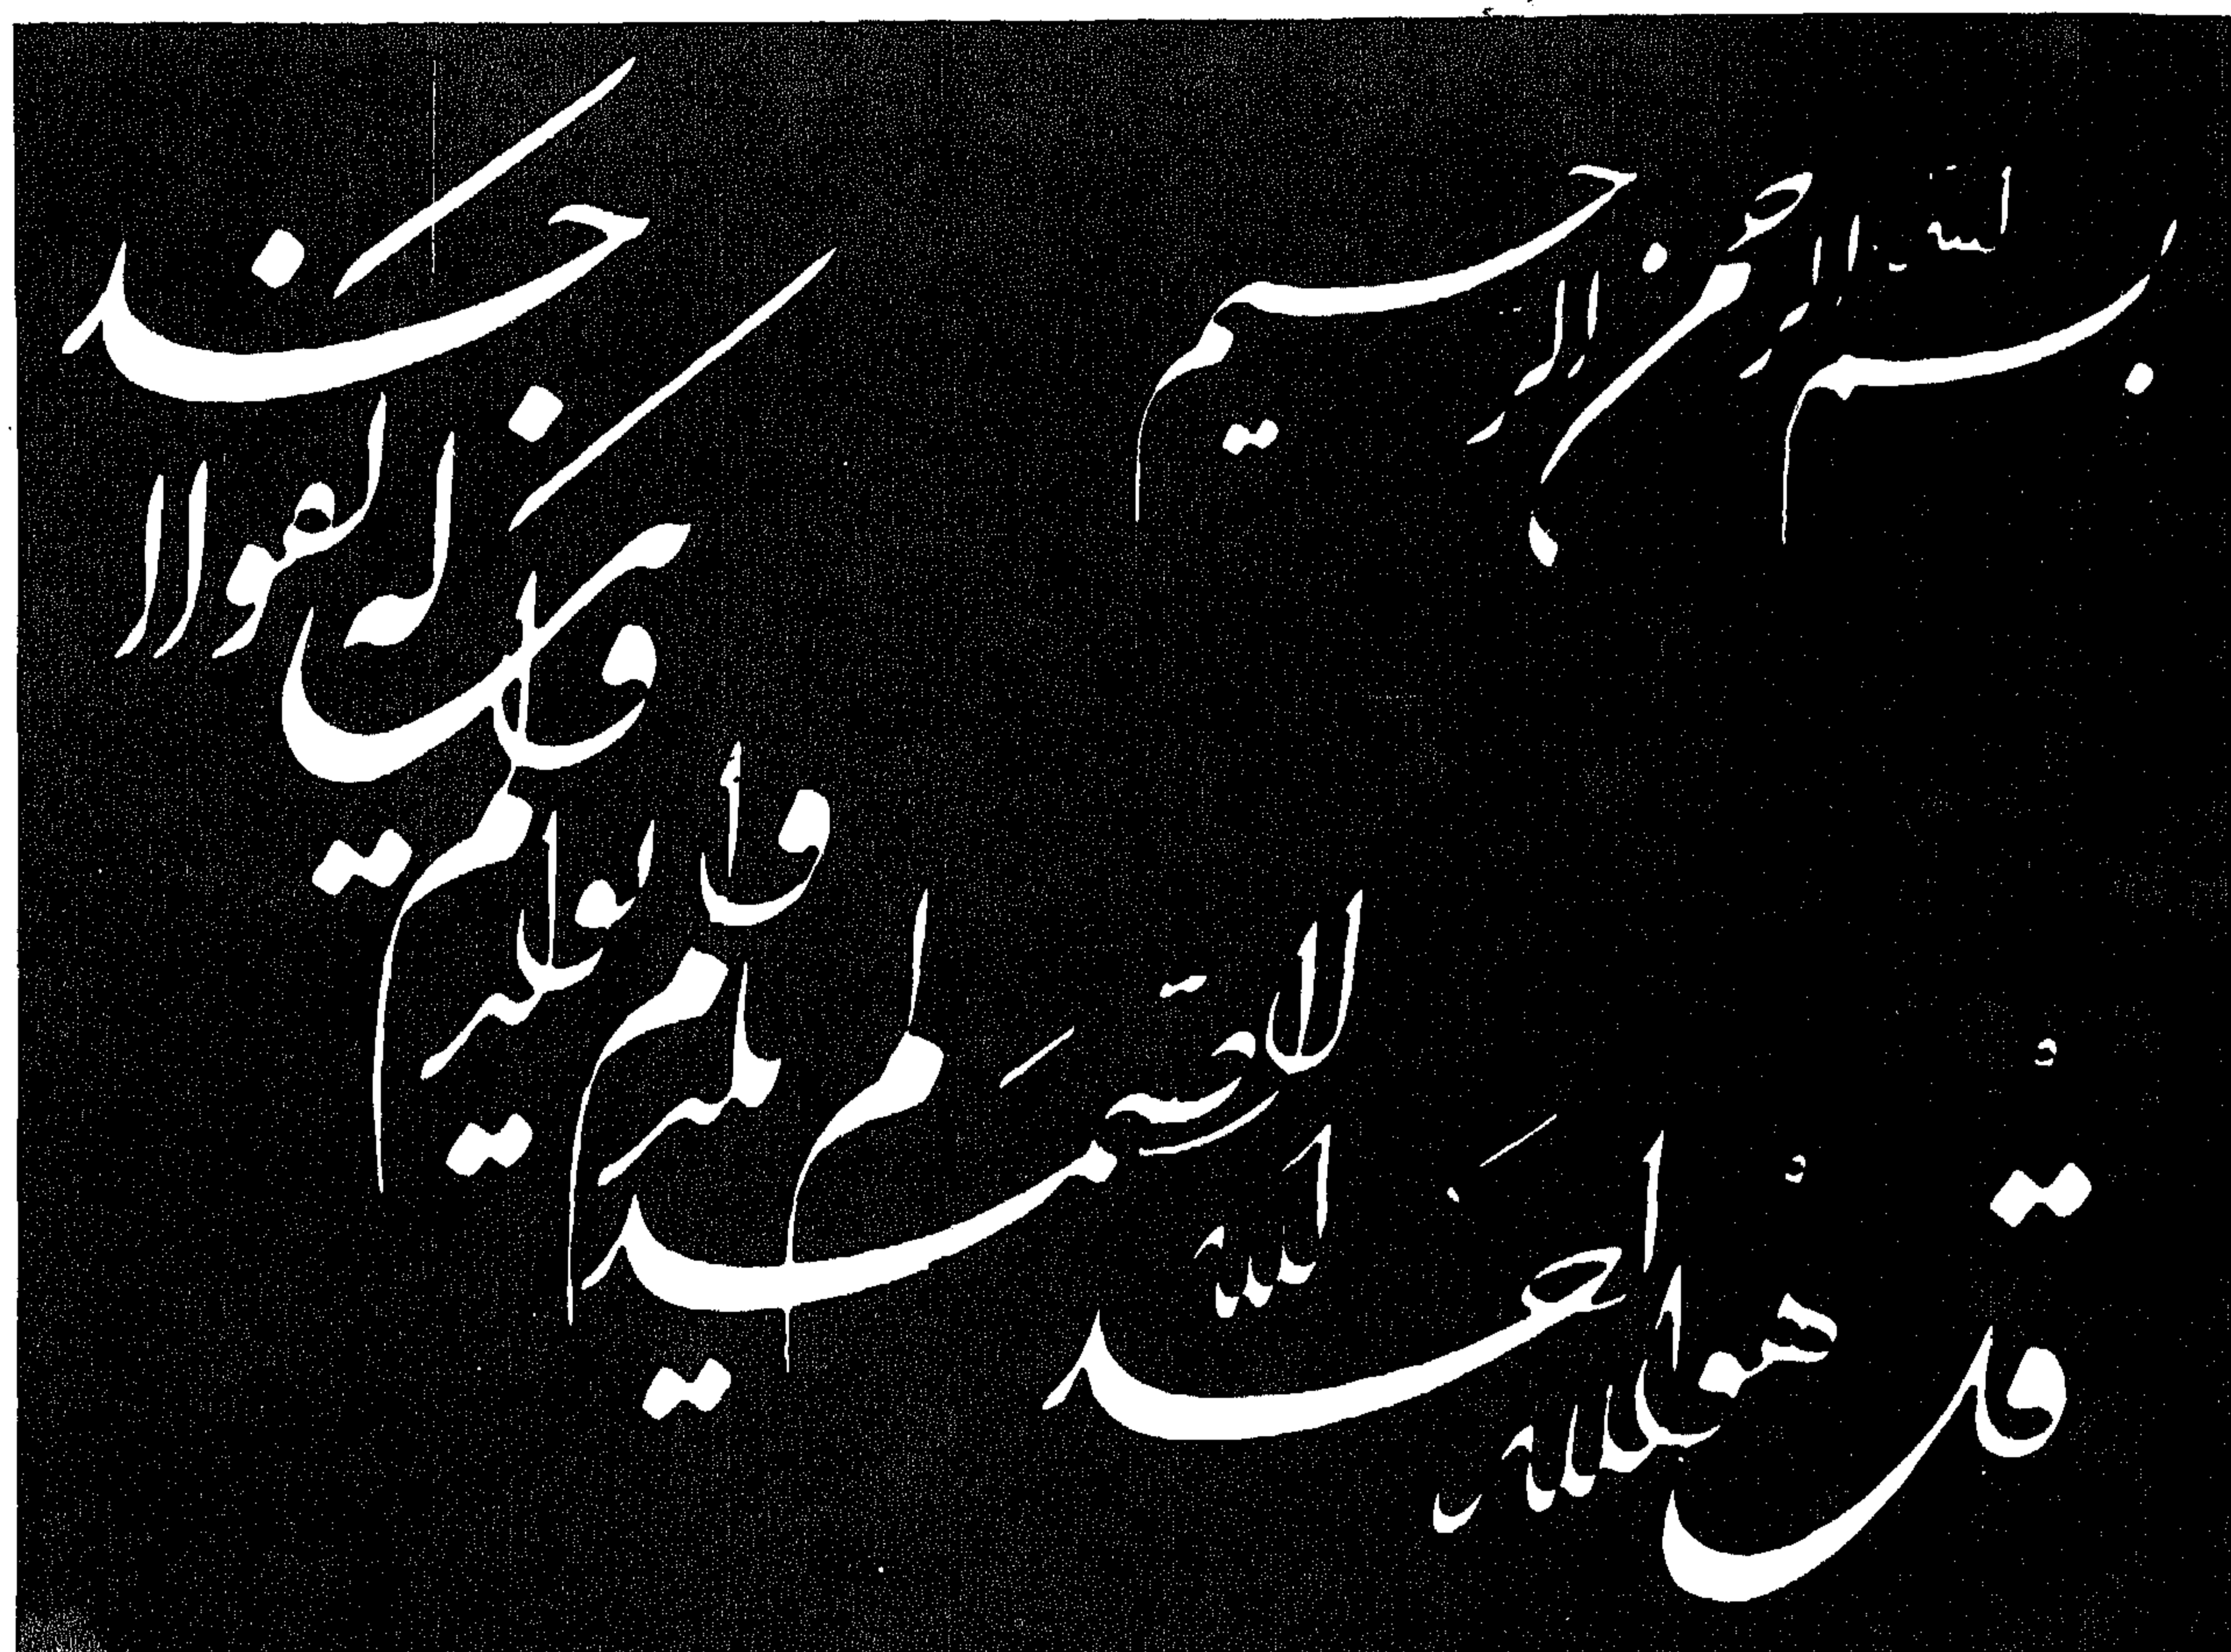 بسم الله الرحمن الرحيم
قل هو الله احد
الله الصمد
لم يلد
و لم يولد
و لم يكن له كفوا احد